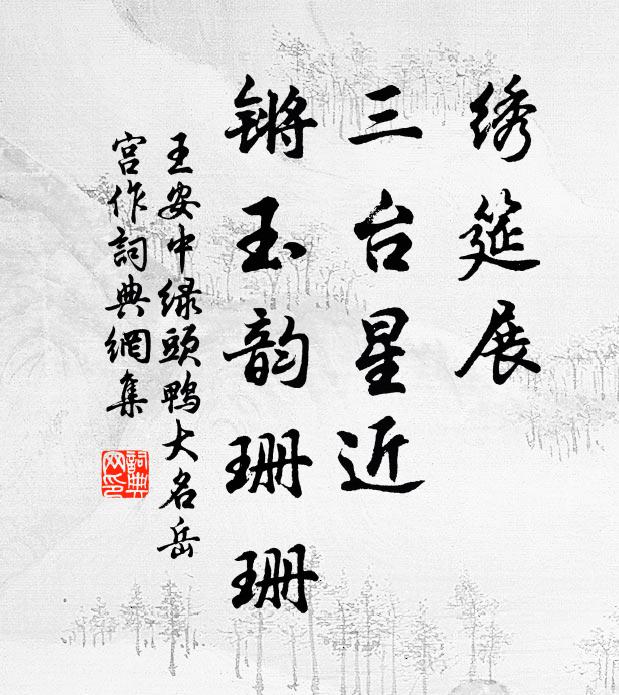 绣筵展
三台星近
锵玉韵珊珊
王安中绿头鸭大名岳
宫作詞典網集
詞典网印